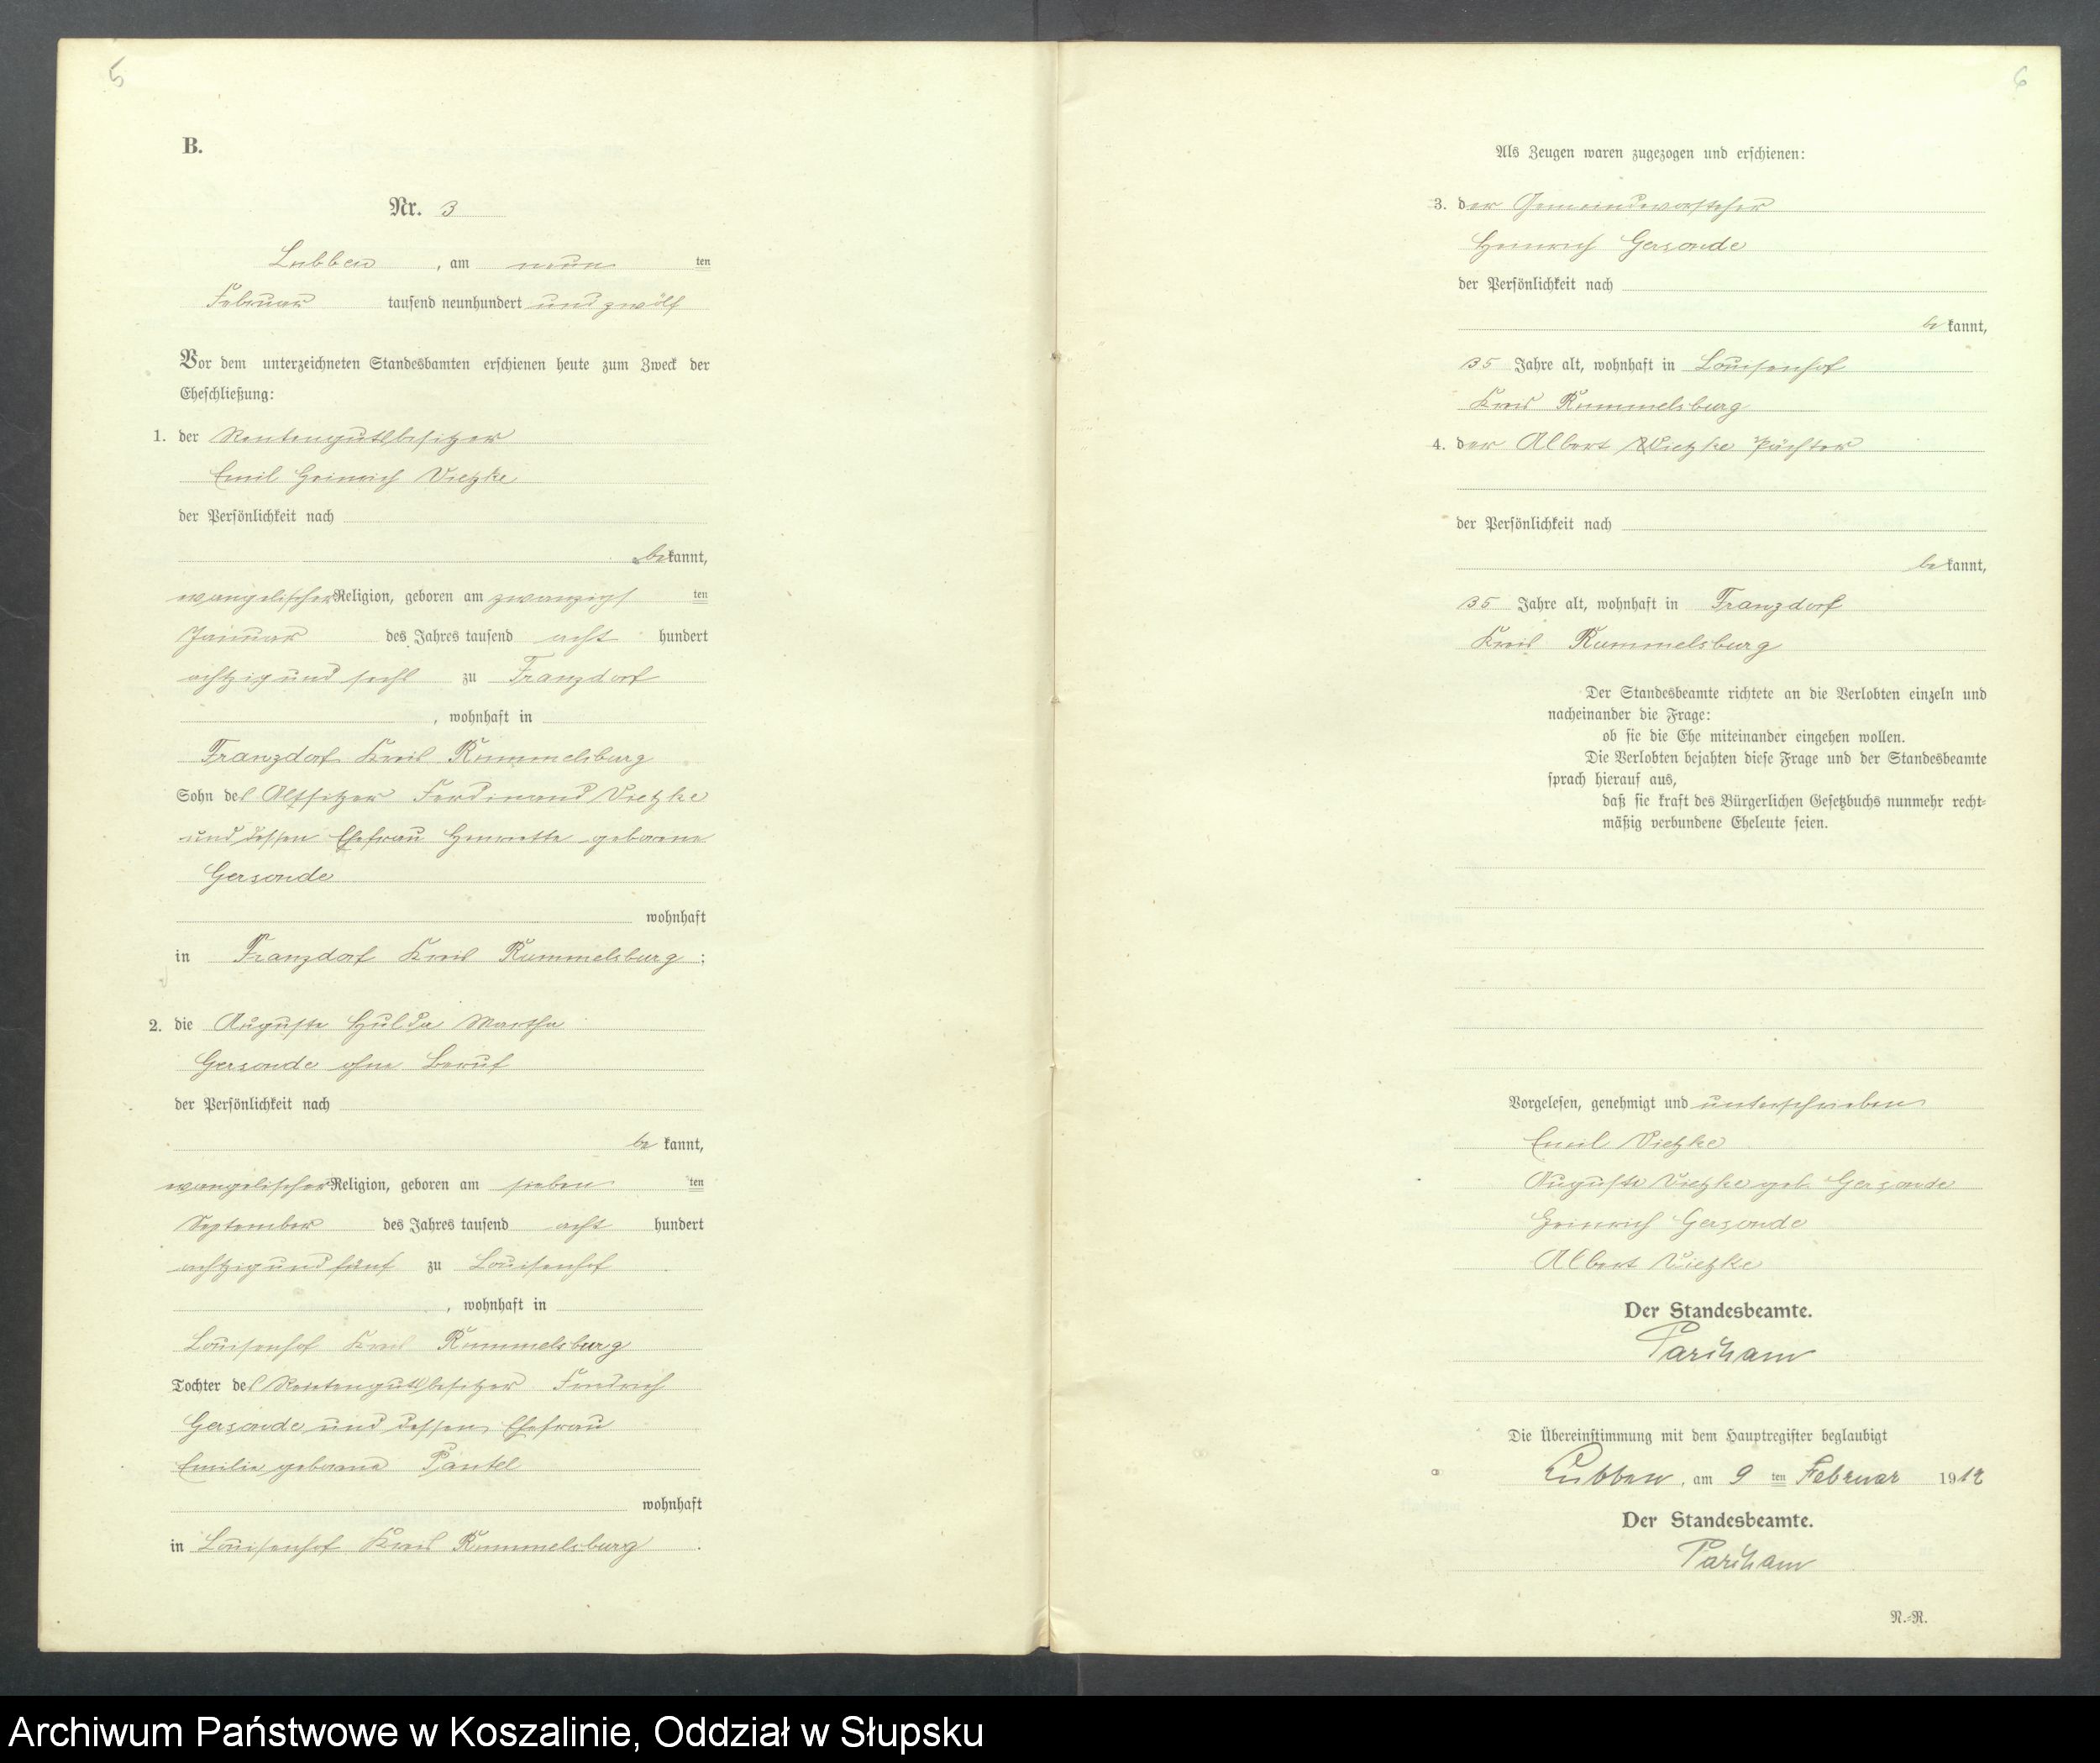 5
B.
Nr. 3
Lubben, am neun ten
Februar tausend neunhundert und zwölf
Vor dem unterzeichneten Standesbamten erschienen heute zum Zweck der
Eheschließung:
1. der Rentengutsbesitzer
Emil Heinrich Vietzke
der Persönlichkeit nach
bekannt,
evangelischer Religion, geboren am zwanzigs ten
Januar des Jahres tausend acht hundert
achtzig und sechs zu Franzdorf
, wohnhaft in
Franzdorf Kreis Rummelsburg
Sohn des Altsitzer Ferdinand Vietzke
und dessen Ehefrau Henriette geborene
Gersonde
wohnhaft
in Franzdorf Kreis Rummelsburg ;
2. die Auguste Hulda Martha
Gersonde ohne Beruf
der Persönlichkeit nach
be kannt,
evangelischer Religion, geboren am sieben ten
September des Jahres tausend acht hundert
achtzig und fünf zu Louisenhof
, wohnhaft in
Louisenhof Kreis Rummelsburg
Tochter des Rentengutsbesitzer Friedrich
Gersonde und dessen Ehefrau
Emilie geborene Pantel
wohnhaft
in Louisenhof Kreis Rummelsburg .
6
Als Zeugen waren zugezogen und erschienen:
3. der Gemeindevorsteher
Heinrich Gersonde
der Persönlichkeit nach
be kannt,
35 Jahre alt, wohnhaft in Louisenhof
Kreis Rummelsburg
4. der Albert Vietzke Pächter
der Persönlichkeit nach
be kannt,
35 Jahre alt, wohnhaft in Franzdorf
Kreis Rummelsburg
Der Standesbeamte richtete an die Verlobten einzeln und
nacheinander die Frage:
ob sie die Ehe miteinander eingehen wollen.
Die Verlobten bejahten diese Frage und der Standesbeamte
sprach hierauf aus,
daß sie kraft des Bürgerlichen Gesetzbuchs nunmehr recht-
mäßig verbundene Eheleute seien.
Vorgelesen, genehmigt und unterschrieben
Emil Vietzke
Auguste Vietzke geb. Gersonde
Heinrich Gersonde
Albert Vietzke
Der Standesbeamte.
Die Übereinstimmung mit dem Hauptregister beglaubigt
Lubben, am 9 ten Februar 1912
Der Standesbeamte.
N.-R.
Archiwum Państwowe w Koszalinie, Oddział w Słupsku